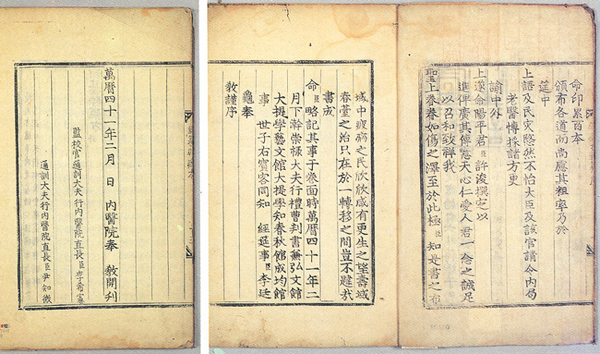 命印累百本
頒布各道而尚慮其粗率乃於
筵中
上語及民灾 然不怡大臣及該官請令內局
老醫博採諸方更
諭中外
上遂命陽平君臣許浚撰 以
進俾廣其傳 天心仁愛人君一念之誠足
以召和致祥我
聖上眷眷如傷之澤至於此極臣知是書之布
域中 病之民欣欣咸有更生之望壽域
春臺之治只在於一轉移之間豈不韙哉
書成
命臣略記其事于卷面時萬曆四十一年二
月下澣崇祿大夫行禮曹判書兼弘文館
大提學藝文館大提學知春秋館成均館
事 世子右賓客同知 經筵事臣李廷
龜奉
敎謹序
萬曆四十一年二月 日 內醫院奉 敎開刊
監校官通訓大夫行內醫院直長臣李希憲
通訓大夫行內醫院直長臣尹知微